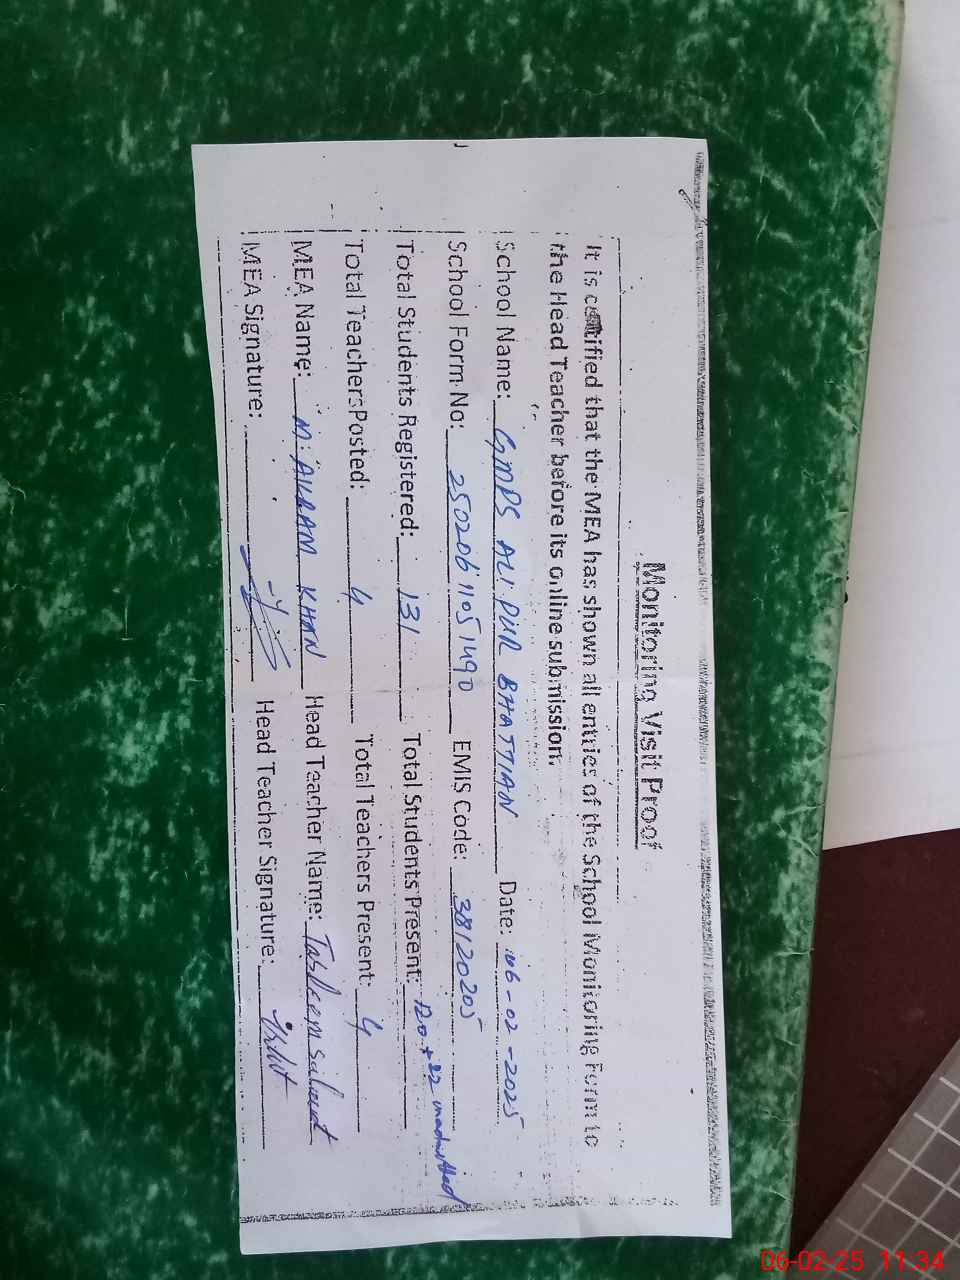 Monitoring Visit Proof
It is certified that the MEA has shown all entries of the School Monitoring Form to
the Head Teacher before its online submission.
School Name: GMPS ALI PUR BHATTIAN Date: 06-02-2025
School Form No: 250206 11051490 EMIS Code: 38120205
Total Students Registered: 131 Total Students Present: 120 + 22 unadmitted
Total Teachers Posted: 4 Total Teachers Present: 4
MEA Name: M. AKRAM KHAN Head Teacher Name: Tasleem
MEA Signature: Head Teacher Signature:
06-02-25 11:34